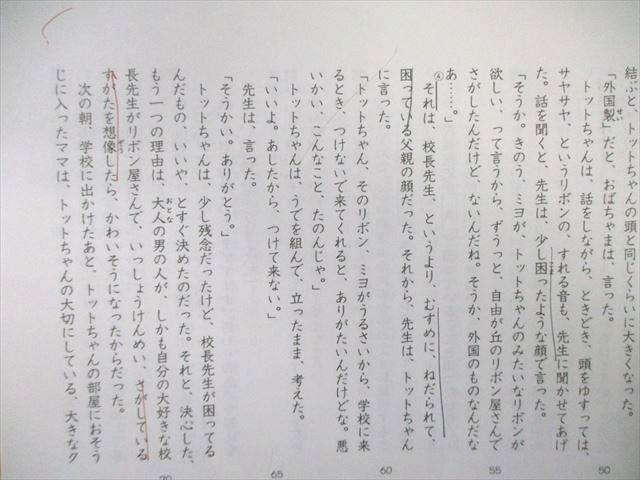 結ぶと、トットちゃんの頭と同じくらいに大きくなった。
「外国製」だと、おばちゃまは、言った。
トットちゃんは、話をしながら、ときどき、頭をゆすっては、
サヤサヤ、というリボンの、すれる音も、先生に聞かせてあげ
た。話を聞くと、先生は、少し困ったような顔で言った。
「そうか。きのう、ミヨが、トットちゃんのみたいなリボンが
欲しい、って言うから、ずうっと、自由が丘のリボン屋さんで
さがしたんだけど、ないんだね。そうか、外国のものなんだな
あ……。」
④それは、校長先生、というより、むすめに、ねだられて、
困っている父親の顔だった。それから、先生は、トットちゃん
に言った。
「トットちゃん、そのリボン、ミヨがうるさいから、学校に来
るとき、つけないで来てくれると、ありがたいんだけどな。悪
いかい、こんなこと、たのんじゃ。」
トットちゃんは、うでを組んで、立ったまま、考えた。
「いいよ。あしたから、つけて来ない。」
先生は、言った。
「そうかい。ありがとう。」
トットちゃんは、少し残念だったけど、校長先生が困ってる
んだもの、いいや、とすぐ決めたのだった。それと、決心した、
もう一つの理由は、大人の男の人が、しかも自分の大好きな校
長先生がリボン屋さんで、いっしょうけんめい、さがしている
すがたを想像したら、かわいそうになったからだった。
次の朝、学校に出かけたあと、トットちゃんの部屋におそう
じに入ったママは、トットちゃんの大切にしている、大きなク
50
55
60
65
70